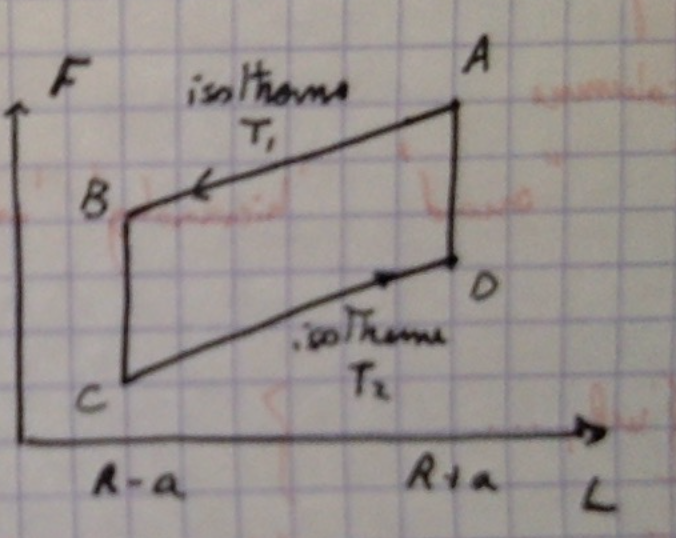 F
A
isotherme
T1
B
D
isotherme
T2
C
R-a
R+a
L